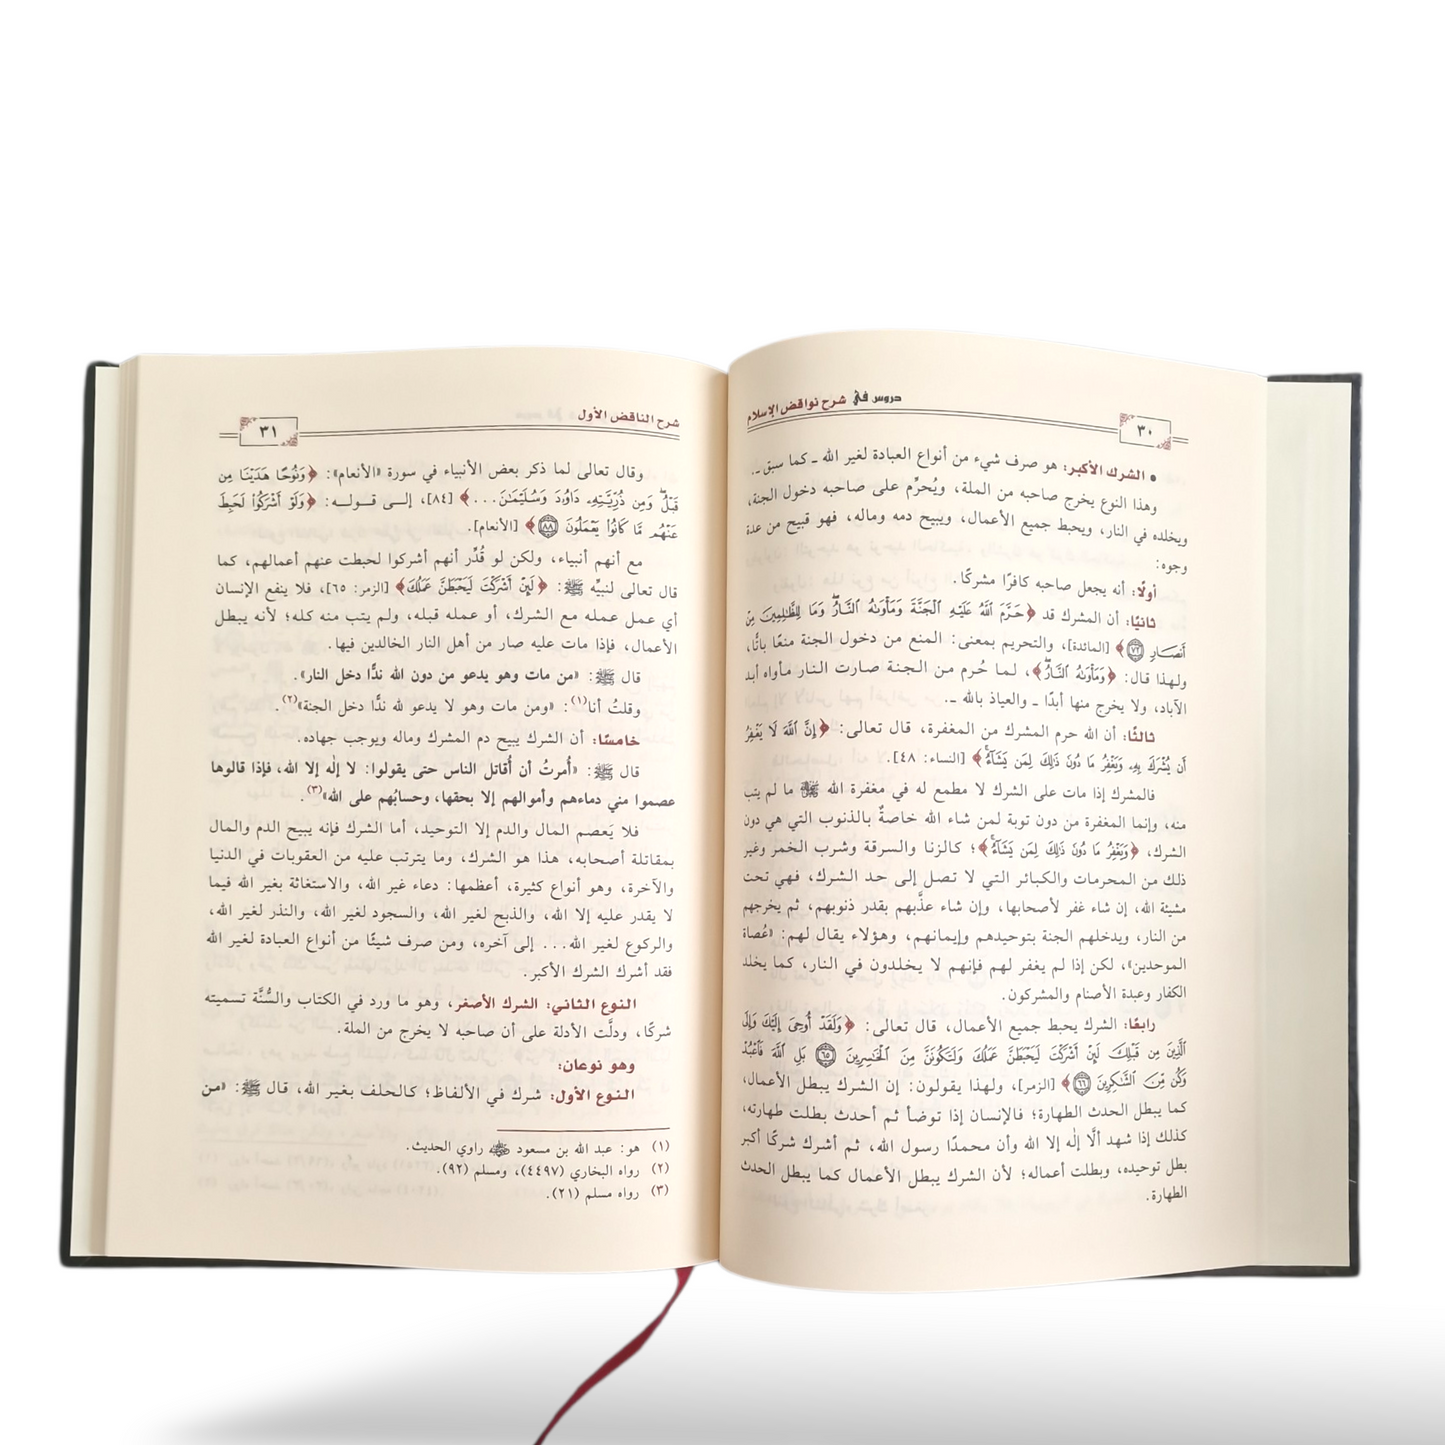 دروس في شرح نواقض الإسلام
٣٠
• الشرك الأكبر: هو صرف شيء من أنواع العبادة لغير الله ـ كما سبق ـ.
وهذا النوع يخرج صاحبه من الملة، ويُحرِّم على صاحبه دخول الجنة،
ويخلده في النار، ويحبط جميع الأعمال، ويبيح دمه وماله، فهو قبيح من عدة
وجوه:
أولًا: أنه يجعل صاحبه كافرًا مشركًا.
ثانيًا: أن المشرك قد ﴿حَرَّمَ ٱللَّهُ عَلَيْهِ ٱلْجَنَّةَ وَمَأْوَىٰهُ ٱلنَّارُ ۖ وَمَا لِلظَّـٰلِمِينَ مِنْ
أَنصَارٍ ٧٢﴾ [المائدة]، والتحريم بمعنى: المنع من دخول الجنة منعًا باتًّا،
ولهذا قال: ﴿وَمَأْوَىٰهُ ٱلنَّارُ ۖ﴾، لما حُرم من الجنة صارت النار مأواه أبد
الآباد، ولا يخرج منها أبدًا ـ والعياذ بالله ـ.
ثالثًا: أن الله حرم المشرك من المغفرة، قال تعالى: ﴿إِنَّ ٱللَّهَ لَا يَغْفِرُ
أَن يُشْرَكَ بِهِۦ وَيَغْفِرُ مَا دُونَ ذَٰلِكَ لِمَن يَشَآءُ ۚ﴾ [النساء: ٤٨].
فالمشرك إذا مات على الشرك لا مطمع له في مغفرة الله ﷻ ما لم يتب
منه، وإنما المغفرة من دون توبة لمن شاء الله خاصةٌ بالذنوب التي هي دون
الشرك، ﴿وَيَغْفِرُ مَا دُونَ ذَٰلِكَ لِمَن يَشَآءُ ۚ﴾؛ كالزنا والسرقة وشرب الخمر وغير
ذلك من المحرمات والكبائر التي لا تصل إلى حد الشرك، فهي تحت
مشيئة الله، إن شاء غفر لأصحابها، وإن شاء عذَّبهم بقدر ذنوبهم، ثم يخرجهم
من النار، ويدخلهم الجنة بتوحيدهم وإيمانهم، وهؤلاء يقال لهم: «عُصاة
الموحدين»، لكن إذا لم يغفر لهم فإنهم لا يخلدون في النار، كما يخلد
الكفار وعبدة الأصنام والمشركون.
رابعًا: الشرك يحبط جميع الأعمال، قال تعالى: ﴿وَلَقَدْ أُوحِىَ إِلَيْكَ وَإِلَى
ٱلَّذِينَ مِن قَبْلِكَ لَئِنْ أَشْرَكْتَ لَيَحْبَطَنَّ عَمَلُكَ وَلَتَكُونَنَّ مِنَ ٱلْخَـٰسِرِينَ ٦٥ بَلِ ٱللَّهَ فَٱعْبُدْ
وَكُن مِّنَ ٱلشَّـٰكِرِينَ ٦٦﴾ [الزمر]، ولهذا يقولون: إن الشرك يبطل الأعمال،
كما يبطل الحدث الطهارة؛ فالإنسان إذا توضأ ثم أحدث بطلت طهارته،
كذلك إذا شهد ألَّا إلٰه إلا الله وأن محمدًا رسول الله، ثم أشرك شركًا أكبر
بطل توحيده، وبطلت أعماله؛ لأن الشرك يبطل الأعمال كما يبطل الحدث
الطهارة.
شرح الناقض الأول
٣١
وقال تعالى لما ذكر بعض الأنبياء في سورة «الأنعام»: ﴿وَنُوحًا هَدَيْنَا مِن
قَبْلُ ۖ وَمِن ذُرِّيَّتِهِۦ دَاوُۥدَ وَسُلَيْمَـٰنَ...﴾ [٨٤]، إلى قوله: ﴿وَلَوْ أَشْرَكُوا۟ لَحَبِطَ
عَنْهُم مَّا كَانُوا۟ يَعْمَلُونَ ٨٨﴾ [الأنعام].
مع أنهم أنبياء، ولكن لو قُدِّر أنهم أشركوا لحبطت عنهم أعمالهم، كما
قال تعالى لنبيِّه ﷺ: ﴿لَئِنْ أَشْرَكْتَ لَيَحْبَطَنَّ عَمَلُكَ﴾ [الزمر: ٦٥]، فلا ينفع الإنسان
أي عمل عمله مع الشرك، أو عمله قبله، ولم يتب منه كله؛ لأنه يبطل
الأعمال، فإذا مات عليه صار من أهل النار الخالدين فيها.
قال ﷺ: «من مات وهو يدعو من دون الله ندًّا دخل النار».
وقلتُ أنا(١): «ومن مات وهو لا يدعو لله ندًّا دخل الجنة»(٢).
خامسًا: أن الشرك يبيح دم المشرك وماله ويوجب جهاده.
قال ﷺ: «أُمرتُ أن أُقاتل الناس حتى يقولوا: لا إلٰه إلا الله، فإذا قالوها
عصموا مني دماءهم وأموالهم إلا بحقها، وحسابُهم على الله»(٣).
فلا يَعصم المال والدم إلا التوحيد، أما الشرك فإنه يبيح الدم والمال
بمقاتلة أصحابه، هذا هو الشرك، وما يترتب عليه من العقوبات في الدنيا
والآخرة، وهو أنواع كثيرة، أعظمها: دعاء غير الله، والاستغاثة بغير الله فيما
لا يقدر عليه إلا الله، والذبح لغير الله، والسجود لغير الله، والنذر لغير الله،
والركوع لغير الله... إلى آخره، ومن صرف شيئًا من أنواع العبادة لغير الله
فقد أشرك الشرك الأكبر.
النوع الثاني: الشرك الأصغر، وهو ما ورد في الكتاب والسُّنَّة تسميته
شركًا، ودلَّت الأدلة على أن صاحبه لا يخرج من الملة.
وهو نوعان:
النوع الأول: شرك في الألفاظ؛ كالحلف بغير الله، قال ﷺ: «من
(١) هو: عبد الله بن مسعود رضي الله عنه راوي الحديث.
(٢) رواه البخاري (٤٤٩٧)، ومسلم (٩٢).
(٣) رواه مسلم (٢١).